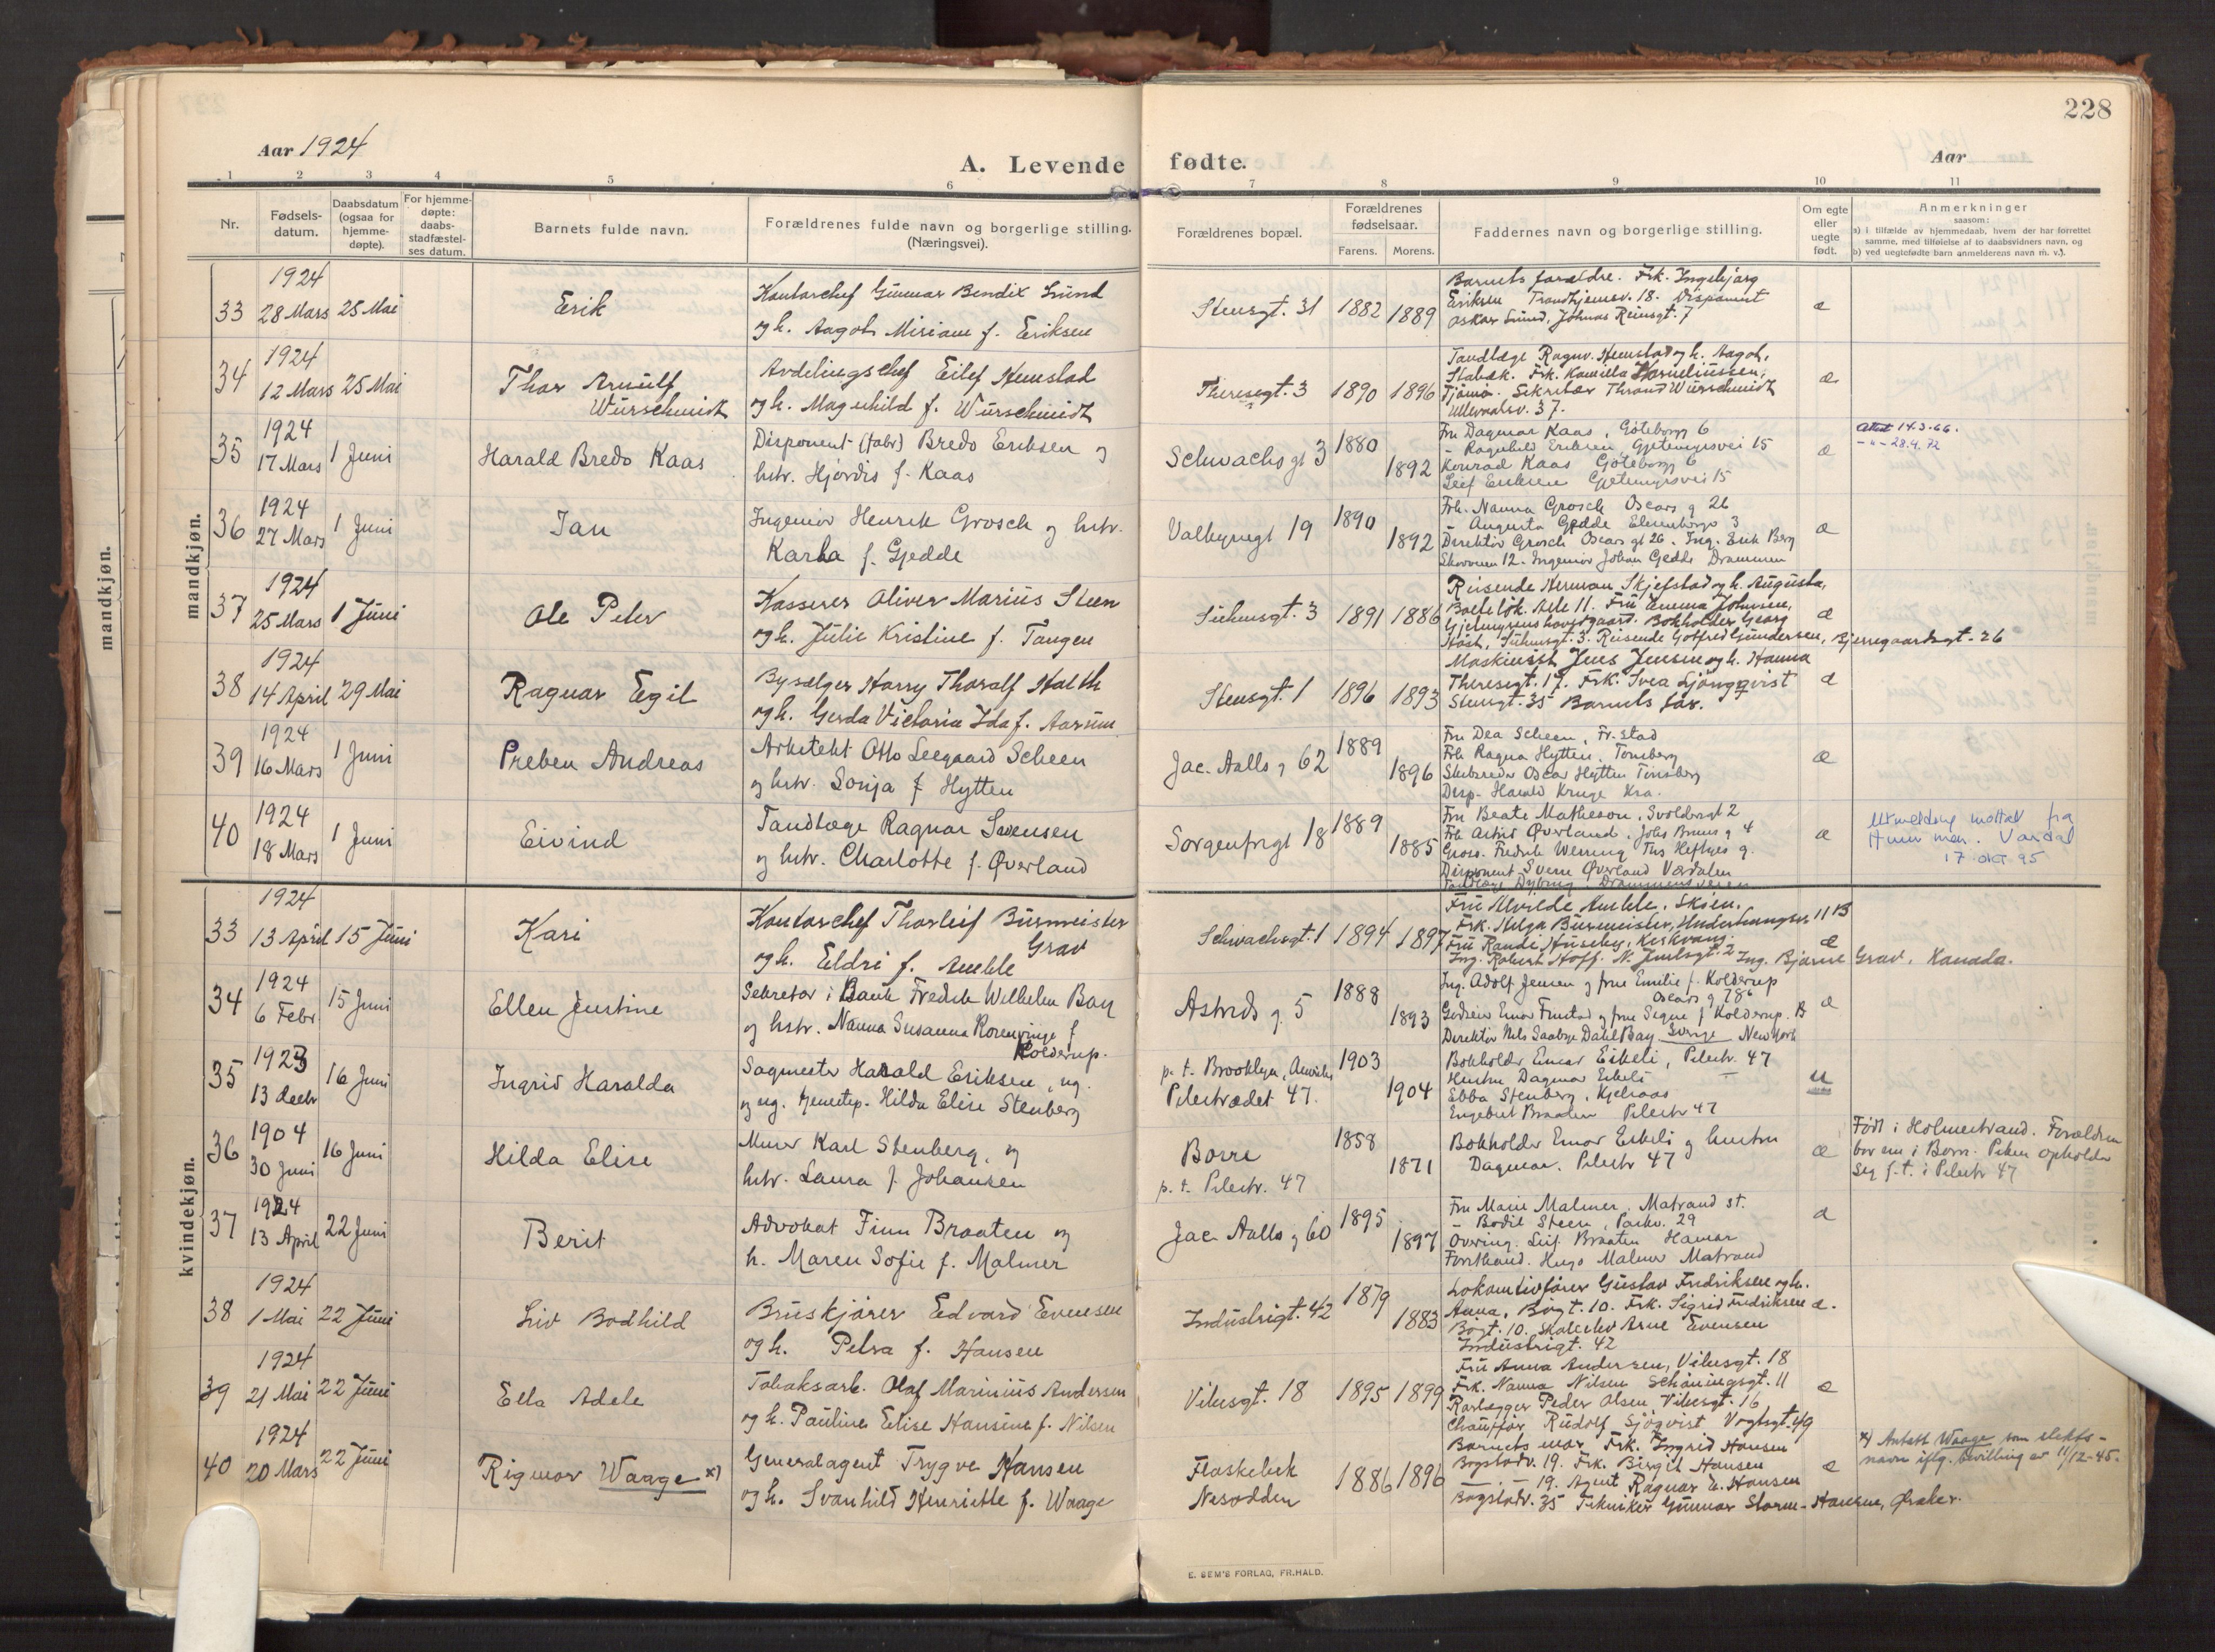 228
Aar 1924
A. Levende fødte.
Aar
1 2 3 4 5 6 7 8 9 10 11
Nr.
Fødsels-
datum.
Daabsdatum
(ogsaa for
hjemme-
døpte).
For hjemme-
døpte:
daabs-
stadfæstel-
ses datum.
Barnets fulde navn.
Forældrenes fulde navn og borgerlige stilling.
(Næringsvei).
Forældrenes bopæl.
Forældrenes
fødselsaar.
Farens. Morens.
Faddernes navn og borgerlige stilling.
Om egte
eller
uegte
født.
Anmerkninger
saasom:
a) i tilfælde av hjemmedaab, hvem der har forrettet
samme, med tilføielse af to daabsvidners navn, og
b) ved uegtefødte barn anmelderens navn m. v.).
mandkjøn.
mandkjøn.
1924
33 28 Mars 25 Mai
Erik
Kontorchef Gunnar Bendix Lund
og h. Aagot Miriam f. Eriksen
Stensgt. 31 1882 1889
Barnets forældre. Frk. Ingebjørg
Eriksen Trondhjemsv. 18. Disponent
Oskar Lund, Johnas Reinsgt. 7
æ
1924
34 12 Mars 25 Mai
Thor Arnulf
Würschmidt
Avdelingschef Eilef Hemstad
og h. Magnhild f. Würschmidt
Theresegt. 3 1890 1896
Tandlæge Ragnv. Hemstad og h. Aagot,
Stabæk. Frk. Kamilla Korneliussen,
Tjømø. Sekretær Thrond Würschmidt
Ullevaalsv. 37.
æ
1924
35 17 Mars 1 Juni
Harald Bredo Kaas
Disponent (fabr) Bredo Eriksen og
hstr. Hjørdis f. Kaas
Schwachsgt 3 1880 1892
Fru Dagmar Kaas, Göteborgg 6
- Ragnhild Eriksen, Gjetemyrsvei 15
Konrad Kaas Göteborgg 6
Leif Eriksen Gjetemyrsvei 15
æ
Attest 14.3.66.
- " - 28.4.72
1924
36 27 Mars 1 Juni
Jan
Ingeniør Henrik Grosch og hstr.
Karla f. Gjedde
Valkyriegt 19 1890 1892
Frk. Nanna Grosch Oscars g 26
- Augusta Gjedde 3
Direktør Grosch Oscars gt 26. Ing. Erik Berg
Skovveien 12. Ingeniør Johan Gedde Drammen
æ
1924
37 25 Mars 1 Juni
Ole Peter
Kasserer Oliver Marius Steen
og h. Julie Kristine f. Tangen
Suhmsgt. 3 1891 1886
Reisende Herman Skjefstad og h. Augusta,
11. Fru Emma Johnsen,
Bokholder Georg
Høst, Suhmsgt. 3. Reisende Gotfred Gundersen, Bjerregaardsgt. 26
æ
1924
38 14 April 29 Mai
Ragnar Egil
Bysælger Harry Thoralf Holth
og h. Gerda Victoria Ida f. Aarum.
Stensgt. 1 1896 1893
Maskinist Jens Jensen og h. Hanna
Theresegt. 17. Frk. Svea Ljöngqvist
Stensgt. 35 Barnets far.
æ
1924
39 16 Mars 1 Juni
Preben Andreas
Arkitekt Otto Leegaard Scheen
og hstr. Sonja f Hytten
Jac. Aalls g 62 1889 1896
Fru Dea Scheen, Fr.stad
Frk Ragna Hytten, Tønsberg
Skibsreder Oscar Hytten Tønsberg
Disp. Harald Kruge Kra.
æ
1924
40 18 Mars 1 Juni
Eivind
Tandlæge Ragnar Svensen
og hstr. Charlotte f. Øverland
Sorgenfrigt 18 1889 1885
Fru Beate Matheson, Svoldersgt 2
Frk Astrid Øverland, Johs Bruns g 4
Gross. Fredrik Werring Ths Heftyes g.
Disponent Sverre Øverland Værdalen
Tandlæge Drammensveien
æ
Utmelding mottat fra
Hum man. Vardal
17 okt 95
kvindekjøn.
1924
33 13 April 15 Juni
Kari
Kontorchef Thorleif Burmeister
Grav
og h. Eldri f. Amble
Schwachsgt. 1 1894 1897
Fru Alvilde Amble, Skien.
Frk. Helga Burmeister, 11 B
Fru Randi Huseby,
Ing. Robert Hoff. N. Juelsgt. 2 Ing. Bjarne Grav, Kanada.
æ
1924
34 6 Febr. 15 Juni
Ellen Justine
Sekretær i Bank Fredrik Wilhelm Bay
og hstr. Nanna Susanna Rosenvinge f
Kolderup.
Astrids g. 5 1888 1893
Ing. Adolf Jensen og frue Emilie f. Kolderup
Oscars g 78b
Godseier Einar Frustad og frue Signe f Kolderup.
Direktør Nils Saabye Dahl Bay Sverige New York
æ
1923
35 13 decbr 16 Juni
Ingrid Haralda
Sagmester Harald Eriksen, ug.
og ug. tjenestep. Hilda Elise Stenberg
p. t. Brooklyn, Amerika 1903
Pilestrædet 47. 1904
Bokholder Einar Eikeli, Pilestr. 47
Hustru Dagmar Eikeli —
Ebba Stenberg, Kjelsaas
Engebret Braaten Pilestr 47
u
1904
36 30 Juni 16 Juni
Hilda Elise
Murer Karl Stenberg, og
hstr. Laura f Johansen
Borre 1858 1871
p. t. Pilestr. 47
Bokholder Einar Eikeli og hustru
Dagmar. Pilestr 47
æ
Født i Holmestrand. Forældrene
bor nu i Borre. Piken opholder
seg f.t. i Pilestr 47
1924
37 13 April 22 Juni
Berit
Advokat Finn Braaten og
h. Maren Sofie f. Malmer
Jac. Aalls g 60 1895 1897
Fru Marie Malmer, Matrand st.
- Bodil Steen, Parkv. 29
Overing. Leif Braaten Hamar
Forstkand. Hugo Malmer Matrand
æ
1924
38 1 Mai 22 Juni
Liv Bodhild
Bruskjører Edvard Evensen
og h. Petra f. Hansen
Industrigt. 42 1879 1883
Lokomotivfører Gustav Fredriksen og h.
Anna, Bøgt. 10. Frk. Sigrid Fredriksen
Bøgt. 10. Skoleelev Arne Evensen
Industrigt. 42
æ.
1924
39 21 Mai 22 Juni
Ella Adele
Tobaksarb. Olaf Marinius Andersen
og h. Pauline Elise Hansine f. Nilsen
Vibesgt. 18 1895 1899
Fru Anna Andersen, Vibesgt. 18
Frk. Nanna Nilsen Schøningsgt. 11
Rørlægger Peder Olsen Vibesgt. 16
Chauffør Rudolf Sjöqvist Vogtsgt. 49
æ
1924
40 20 Mars 22 Juni
Rigmor Waage x)
Generalagent Trygve Hansen
og h. Svanhild Henriette f. Waage
Flaskebek
Nesodden 1886 1896
Barnets mor, Frk. Ingrid Hansen
Bogstadv. 19. Frk. Birgit Hansen
— . — 19. Agent Ragnar E. Hansen
Bogstadv. 35 Tekniker Gunnar Storm-Hansen, Øraker.
æ
x) Antatt Waage som slekts-
navn iflg. bevilling av 11/12-45.
E. SEM'S FORLAG, FR.HALD.